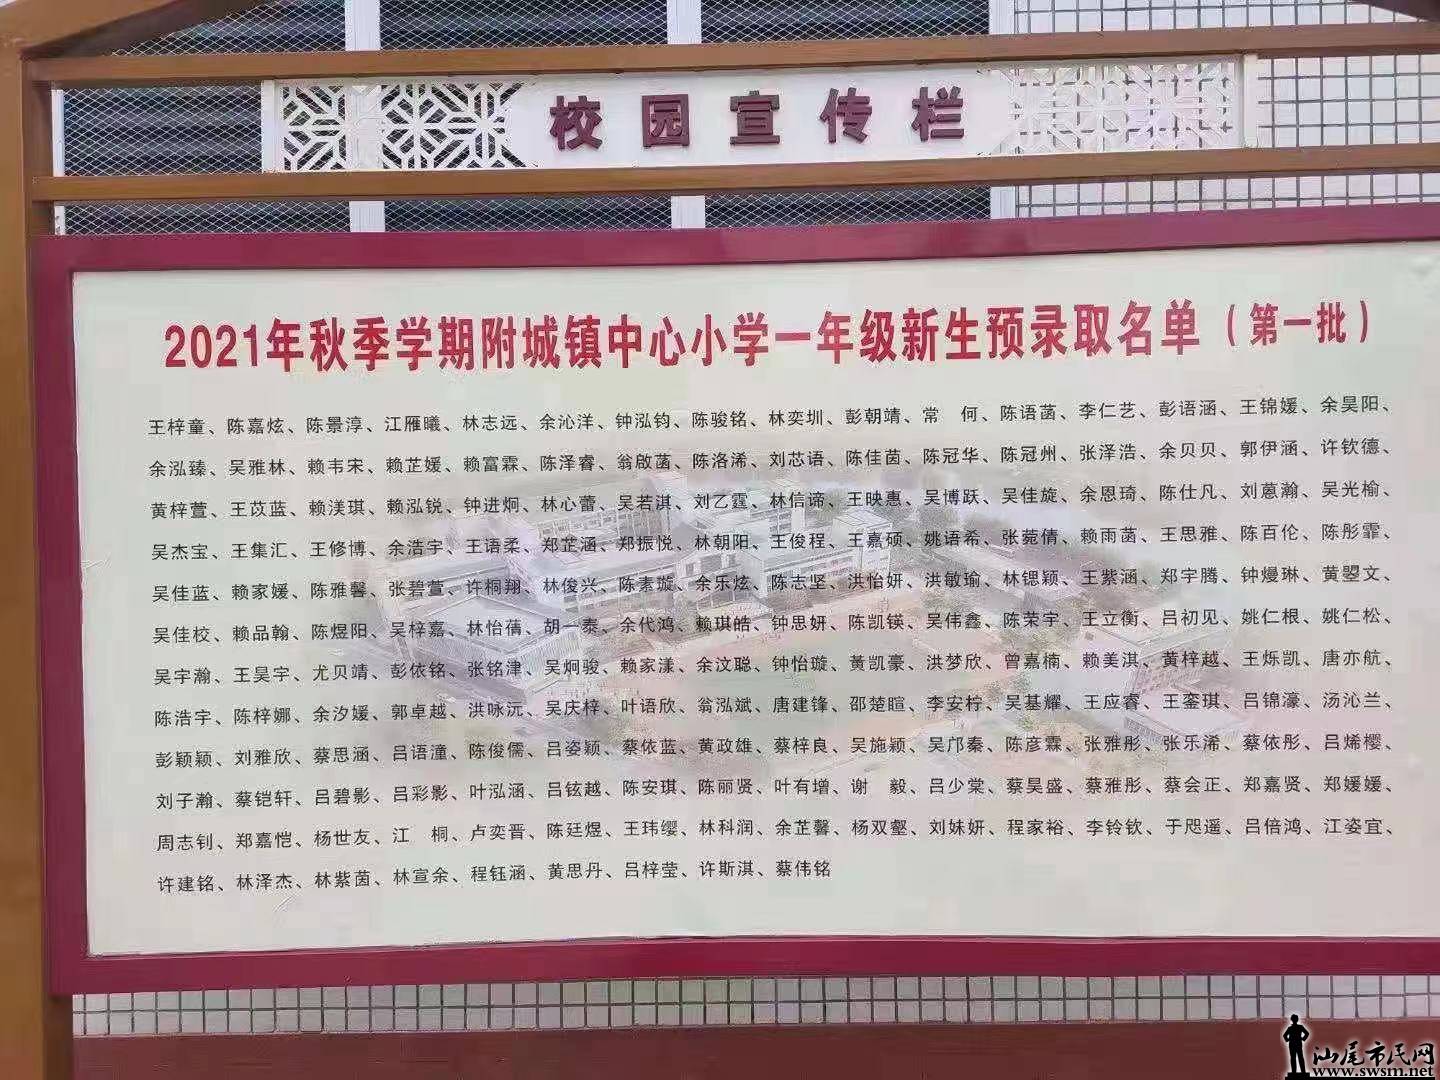 校园宣传栏
2021年秋季学期附城镇中心小学一年级新生预录取名单（第一批）
王梓童、陈嘉炫、陈景淳、江雁曦、林志远、余沁洋、钟泓钧、陈骏铭、林奕圳、彭朝靖、常　何、陈语菡、李仁艺、彭语涵、王锦媛、余昊阳、
余泓臻、吴雅林、赖韦宋、赖芷媛、赖富霖、陈泽睿、翁啟菡、陈洛浠、刘芯语、陈佳茵、陈冠华、陈冠州、张泽浩、余贝贝、郭伊涵、许钦德、
黄梓萱、王苡蓝、赖渼琪、赖泓锐、钟进炯、林心蕾、吴若淇、刘乙霆、林信谛、王映惠、吴博跃、吴佳旋、余恩琦、陈仕凡、刘蒽瀚、吴光榆、
吴杰宝、王集汇、王修博、余浩宇、王语柔、郑芷涵、郑振悦、林朝阳、王俊程、王嘉硕、姚语希、张菀倩、赖雨菡、王思雅、陈百伦、陈彤霏、
吴佳蓝、赖家媛、陈雅馨、张碧萱、许桐翔、林俊兴、陈素璇、余乐炫、陈志坚、洪怡妍、洪敏瑜、林锶颖、王紫涵、郑宇腾、钟熳琳、黄曌文、
吴佳校、赖品翰、陈煜阳、吴梓嘉、林怡蒨、胡一泰、余代鸿、赖琪皓、钟思妍、陈凯锳、吴伟鑫、陈荣宇、王立衡、吕初见、姚仁根、姚仁松、
吴宇瀚、王昊宇、尤贝靖、彭依铭、张铭津、吴炯骏、赖家漾、余汶聪、钟怡璇、黄凯豪、洪梦欣、曾嘉楠、赖美淇、黄梓越、王烁凯、唐亦航、
陈浩宇、陈梓娜、余汐媛、郭卓越、洪咏沅、吴庆梓、叶语欣、翁泓斌、唐建锋、邵楚暄、李安柠、吴基耀、王应睿、王銮琪、吕锦濠、汤沁兰、
彭颖颖、刘雅欣、蔡思涵、吕语潼、陈俊儒、吕姿颖、蔡依蓝、黄政雄、蔡梓良、吴施颖、吴邝秦、陈彦霖、张雅彤、张乐浠、蔡依彤、吕烯樱、
刘子瀚、蔡铠轩、吕碧影、吕彩影、叶泓涵、吕铉越、陈安琪、陈丽贤、叶有增、谢　毅、吕少棠、蔡昊盛、蔡雅彤、蔡会正、郑嘉贤、郑媛媛、
周志钊、郑嘉恺、杨世友、江　桐、卢奕晋、陈廷煜、王玮缨、林科润、余芷馨、杨双壑、刘妹妍、程家裕、李铃钦、于咫遥、吕倍鸿、江姿宜、
许建铭、林泽杰、林紫茵、林宣余、程钰涵、黄思丹、吕梓莹、许斯淇、蔡伟铭
汕尾市民网
www.swsm.net